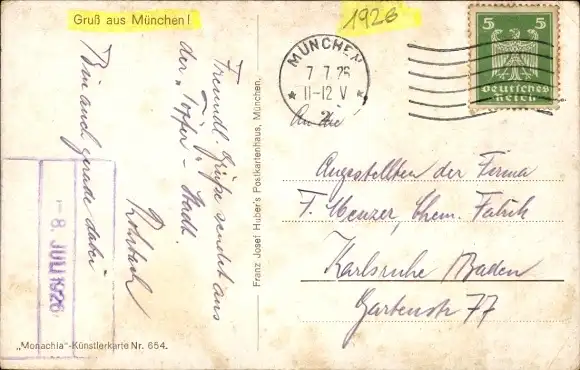 Gruß aus München!
1926
MÜNCHEN
7.7.26
11-12 V
5 5
Deutsches
Reich
Freundl. Grüße sendet aus
der „Töpfer-Stadt.
Rohrbach
Bin auch gerade dabei
-8. JULI 1926
Franz Josef Huber's Postkartenhaus, München.
An die
Angestellten der Firma
F. Menzer, Chem. Fabrik
Karlsruhe Baden
Gartenstr 77
„Monachia"-Künstlerkarte Nr. 654.